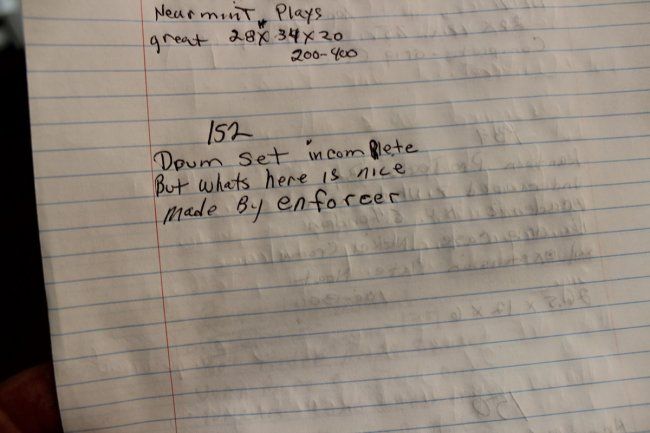 Near mint Plays
great 28X 34 X 20
200-400
152
Drum set incomplete
But whats here is nice
made By enforcer